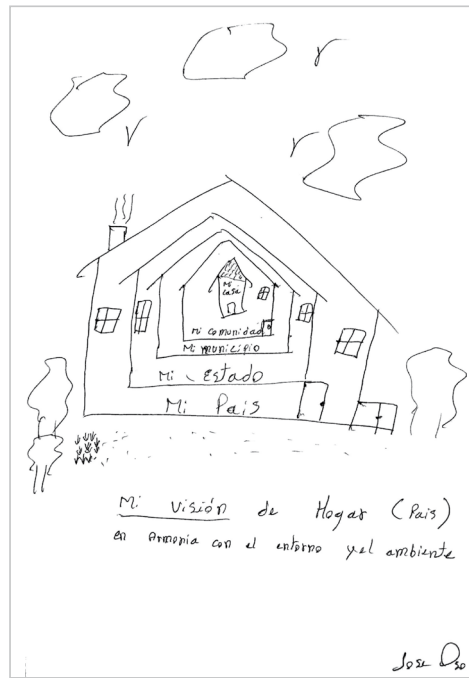 Mi
casa
Mi comunidad
Mi municipio
Mi Estado
Mi Pais
Mi visión de Hogar (Pais)
en Armonia con el entorno y el ambiente
Jose